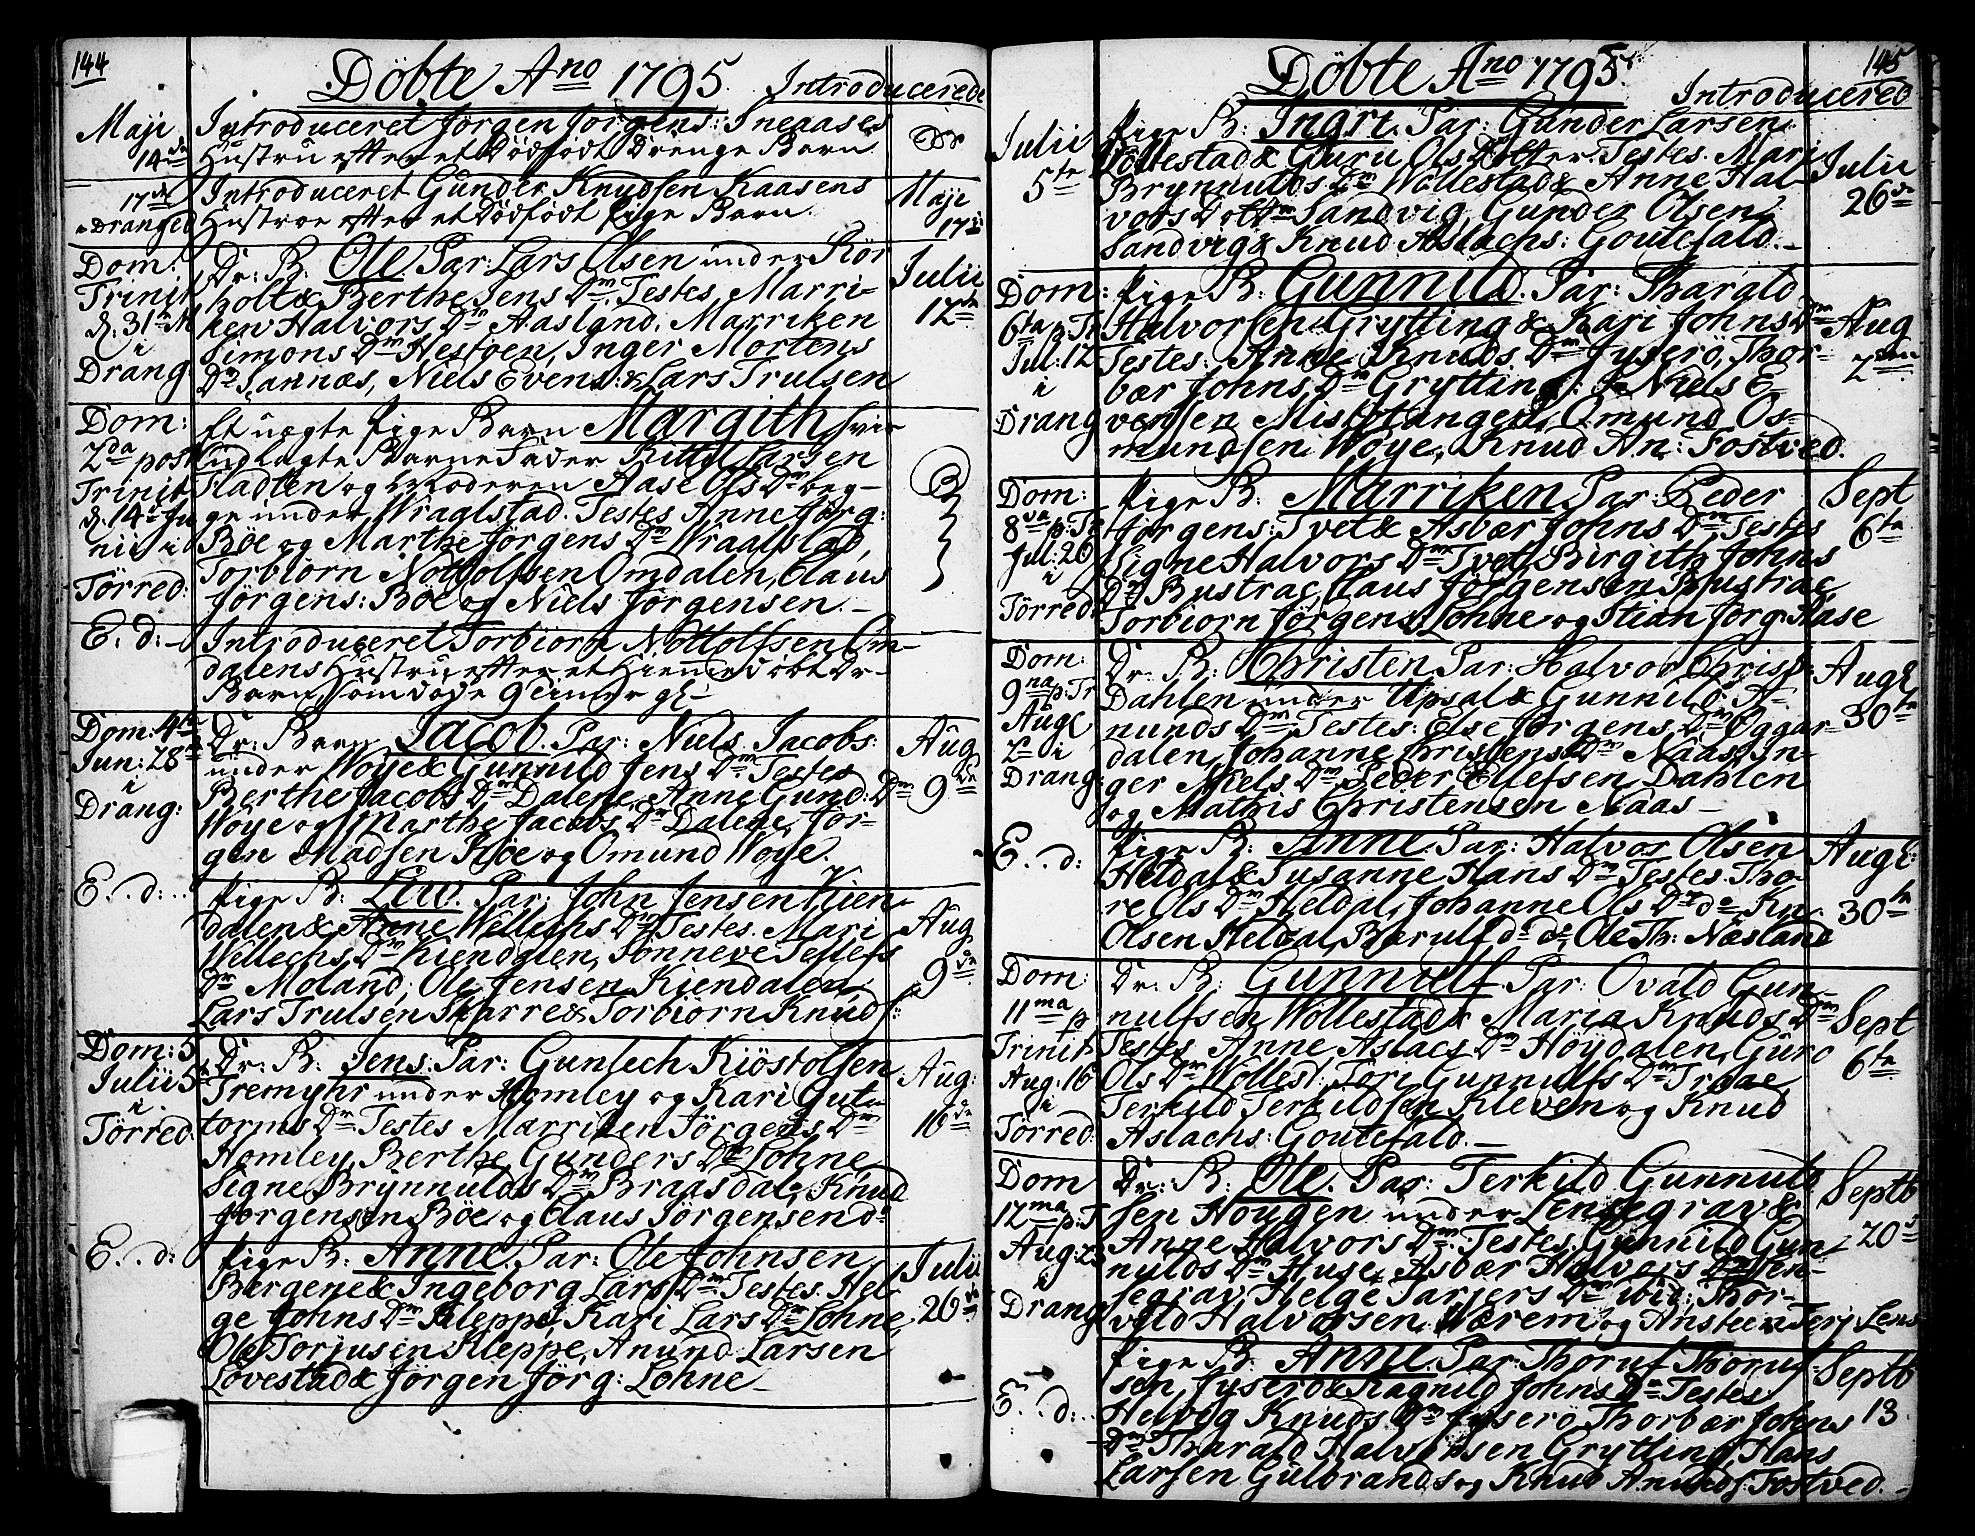 144
Döbte Ano 1795.
Introducerede
Maji 14de
Introduceret Jörgen Jörgens: Sneaases
Hustru efter et Dödfödt Drenge Barn
17de Dranged
Introduceret Gunder Knudsen Kaasens
Hustroe efter et Dödfödt Pige Barn.
Maji 17de
Dom: Trinit d: 31te M i Drang
Dr: B: Ole. Par: Lars Olsen under Rör
holt & Berthe Jens Dm. Testes. Marri-
ken Halvors Dm Aasland, Marriken
Simons Dm Nestöen, Inger Mortens
Dm Sannæs, Niels Evens: & Lars Trulsen
Julii 12de
Dom: 2da post Trinit d. 14de Junii i Törred:
Et uegte Pige Barn Margith hvis
udlagte BarneFader Kittil Larsen
Fladten og Moderen Aase Ols Dm beg-
ge under Wraalstad. Testes Anne Jörg:
Böe og Marthe Jörgens Dm Wraalstad,
Torbiorn Nottolfsen Omdalen, Claus
Jörgens: Böe og Niels Jörgensen.
E. d:
Introduceret Torbiorn Nottolfsen Om-
dalens Hustru efter et Hiemmedöbt Dr-
Barn som döde
Dom: 4te Jun: 28de i Drang:
Dr: Barn Jacob. Par: Niels Jacobs:
under Woye & Gunnild Jens Dm Testes
Berthe Jacobs Dm Dalene, Anne Gund: Dm
Woye og Marthe Jacobs Dm Dalene, Jör-
gen Madsen Böe og Omund Woye.
Aug 9de
E. d:
Pige B: Liv. Par: John Jensen Kien-
dalen & Anne Wellechs Dm Testes. Mari
Wellechs Dm Kiendalen, Sonneve Tellefs
Dm Moland, Ole Jensen Kiendalen,
Lars Trulsen Skarre & Torbiorn Knuds:
Aug 9de
Dom: 5 Julii 5 i Törred:
Dr: B: Jens. Par: Gunlech Kiöstolsen
Tremyhr under Homley og Kari Gut-
torms Dm Testes Marriken Jörgens Dm
Homley, Berthe Gunders Dm Lohne,
Signe Brynnulds Dm Braasdal, Knud
Jörgensen Böe og Claus Jörgensen do
Aug: 16de
E. d:
Pige B: Anne. Par: Ole Johnsen
Bergene & Ingeborg Lars Dm Testes. Hel-
ge Johns Dm Kleppe, Kari Lars Dm Lohne,
Ole Torjusen Kleppe, Anund Larsen
Lövestad & Jörgen Jörg: Lohne
Julii 26de
145
Döbte Ano 1795.
Introducered
Julii 5te
Pige B: Ingri. Par: Gunder Larsen
Wöllestad & Guru Ols Dotter. Testes. Mari
Brynnulds Dm Wöllestad & Anne Hal-
vors Dottm Sandvig, Gunder Olsen
Sandvig & Knud Aslachs: Goutefald.
Julii 26de
Dom: 6ta p. Tr Jul: 12 i Drang
Pige B: Gunnild. Par: Tharald
Halvorsen Grytting & Kari Johns Dm
Testes. Anne Knuds Dm Fyserö, Thor-
bær Johns Dm Grytting: & Niels E-
vensen Midtstangen, Omund Os-
mundsen Woye, Knud An: Fostved.
Aug 2den
Dom: 8va p: Tr Jul: 26 i Törred:
Pige B: Marriken. Par: Peder
Jörgens: Tvet & Asbær Johns Dm Testes
Signe Halvors Dm Tvet, Birgith Johns
Dm Bustrac, Claus Jörgensen Bustrac,
Torbiorn Jörgens: Lohne og Stian Jörg: Aase
Sept 6te
Dom: 9na p: Tr Aug 2 i Drang:
Dr: B: Christen. Par: Halvor Christ:
Dahlen under Upsal & Gunnild A-
nunds Dm Testes: Else Jörgens Dm Oggar-
dalen, Johanne Christens Dm Naas, In-
ger Niels Dm Peder Ellefsen Dahlen
og Mathis Christensen Naas
Aug: 30te
E. d:
Pige B: Anne. Par: Halvor Olsen
Heldal & Susanne Hans Dm Testes. Tho-
re Ols Dm Heldal, Johanne Ols Dm do Kn:
Olsen Heldal, Bærulf do do Ole Th: Næsland
Aug: 30te
Dom: 11ma p Trinit: Aug: 16 i Törred:
Dr: B: Gunnulf Par: Ovald Gun-
nulfsen Wöllestad & Maria Knuds Dm
Testes. Anne Aslacs Dm Höydalen, Guro
Ols Dm Wöllest: Tori Gunnulfs Dm Traae
Terkild Terkildsen Kleven og Knud
Aslachs: Goutefald.
Sept 6te
Dom 12ma p: T Aug: 23 i Drang
Dr: B: Ole. Par: Terkild Gunnuld
sen Hougen under Lensegrav &
Anne Halvors Dm. Testes. Gunnild Gun-
nulds Dm Huse, Asbær Halvors Dm Len-
segrav, Helge Tarjers Dm ibid: Thor-
vild Halvorsen Wærem og Ansteen Terj: Lens
Septb 20de
E. d:
Pige B: Anne. Par: Thoruf Thoruf-
sen Fyserö & Ragnild Johns Dm Testes
Helvig Knuds Dm Fyserö, Thorbær Johns
Dm Tharald Halvorsen Grytting, Hans
Larsen Gulbrands og Knud Anunds: Fostved.
Septb 13